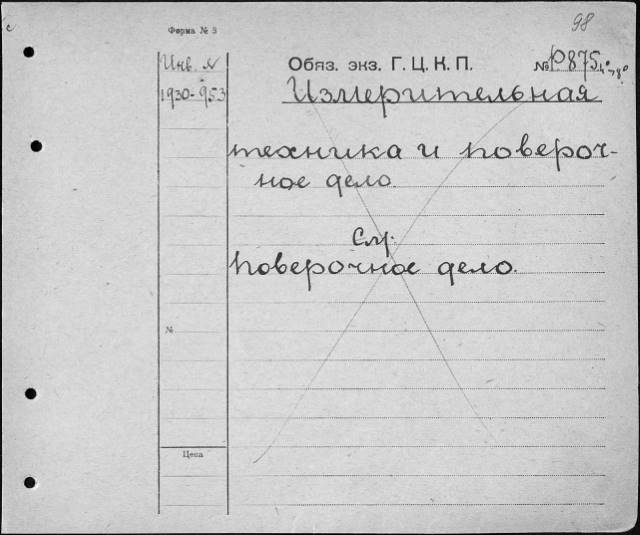 98
Форма № 3
Инв. №
1930-953
Обяз. экз. Г. Ц. К. П.
№ Р875
Измерительная
техника и повероч-
ное дело.
См.
Поверочное дело.
№
Цена